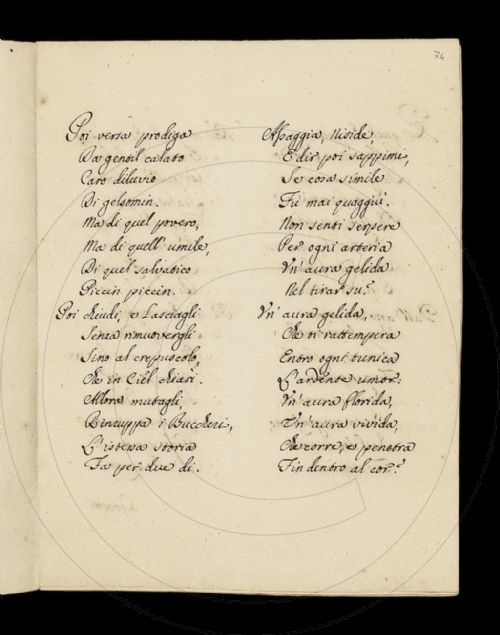 74
Poi versa prodiga
Da gentil calato
Caro diluvio
Di gelsomin.
Ma di quel povero,
Ma di quell' umile,
Di quel salvatico
Piccin piccin.
Poi chiudi, e Lasciagli
Senza rimuovergli
Sino al crepuscolo,
Che in Ciel chiari.
Allora mutagli,
Rinzuppa i Buccheri,
L'istessa storia
Fa per due dì.
Assaggia, Niside,
E dir poi sappimi,
Se cosa simile
Fu mai quaggiù.
Non senti serpere
Per ogni arteria
Un' aura gelida
Nel tirar su?
Un' aura gelida,
Che ti rattempera
Entro ogni tunica
L'ardente umor:
Un' aura florida,
Un' aura vivida,
Che corre, e penetra
Fin dentro al cor?